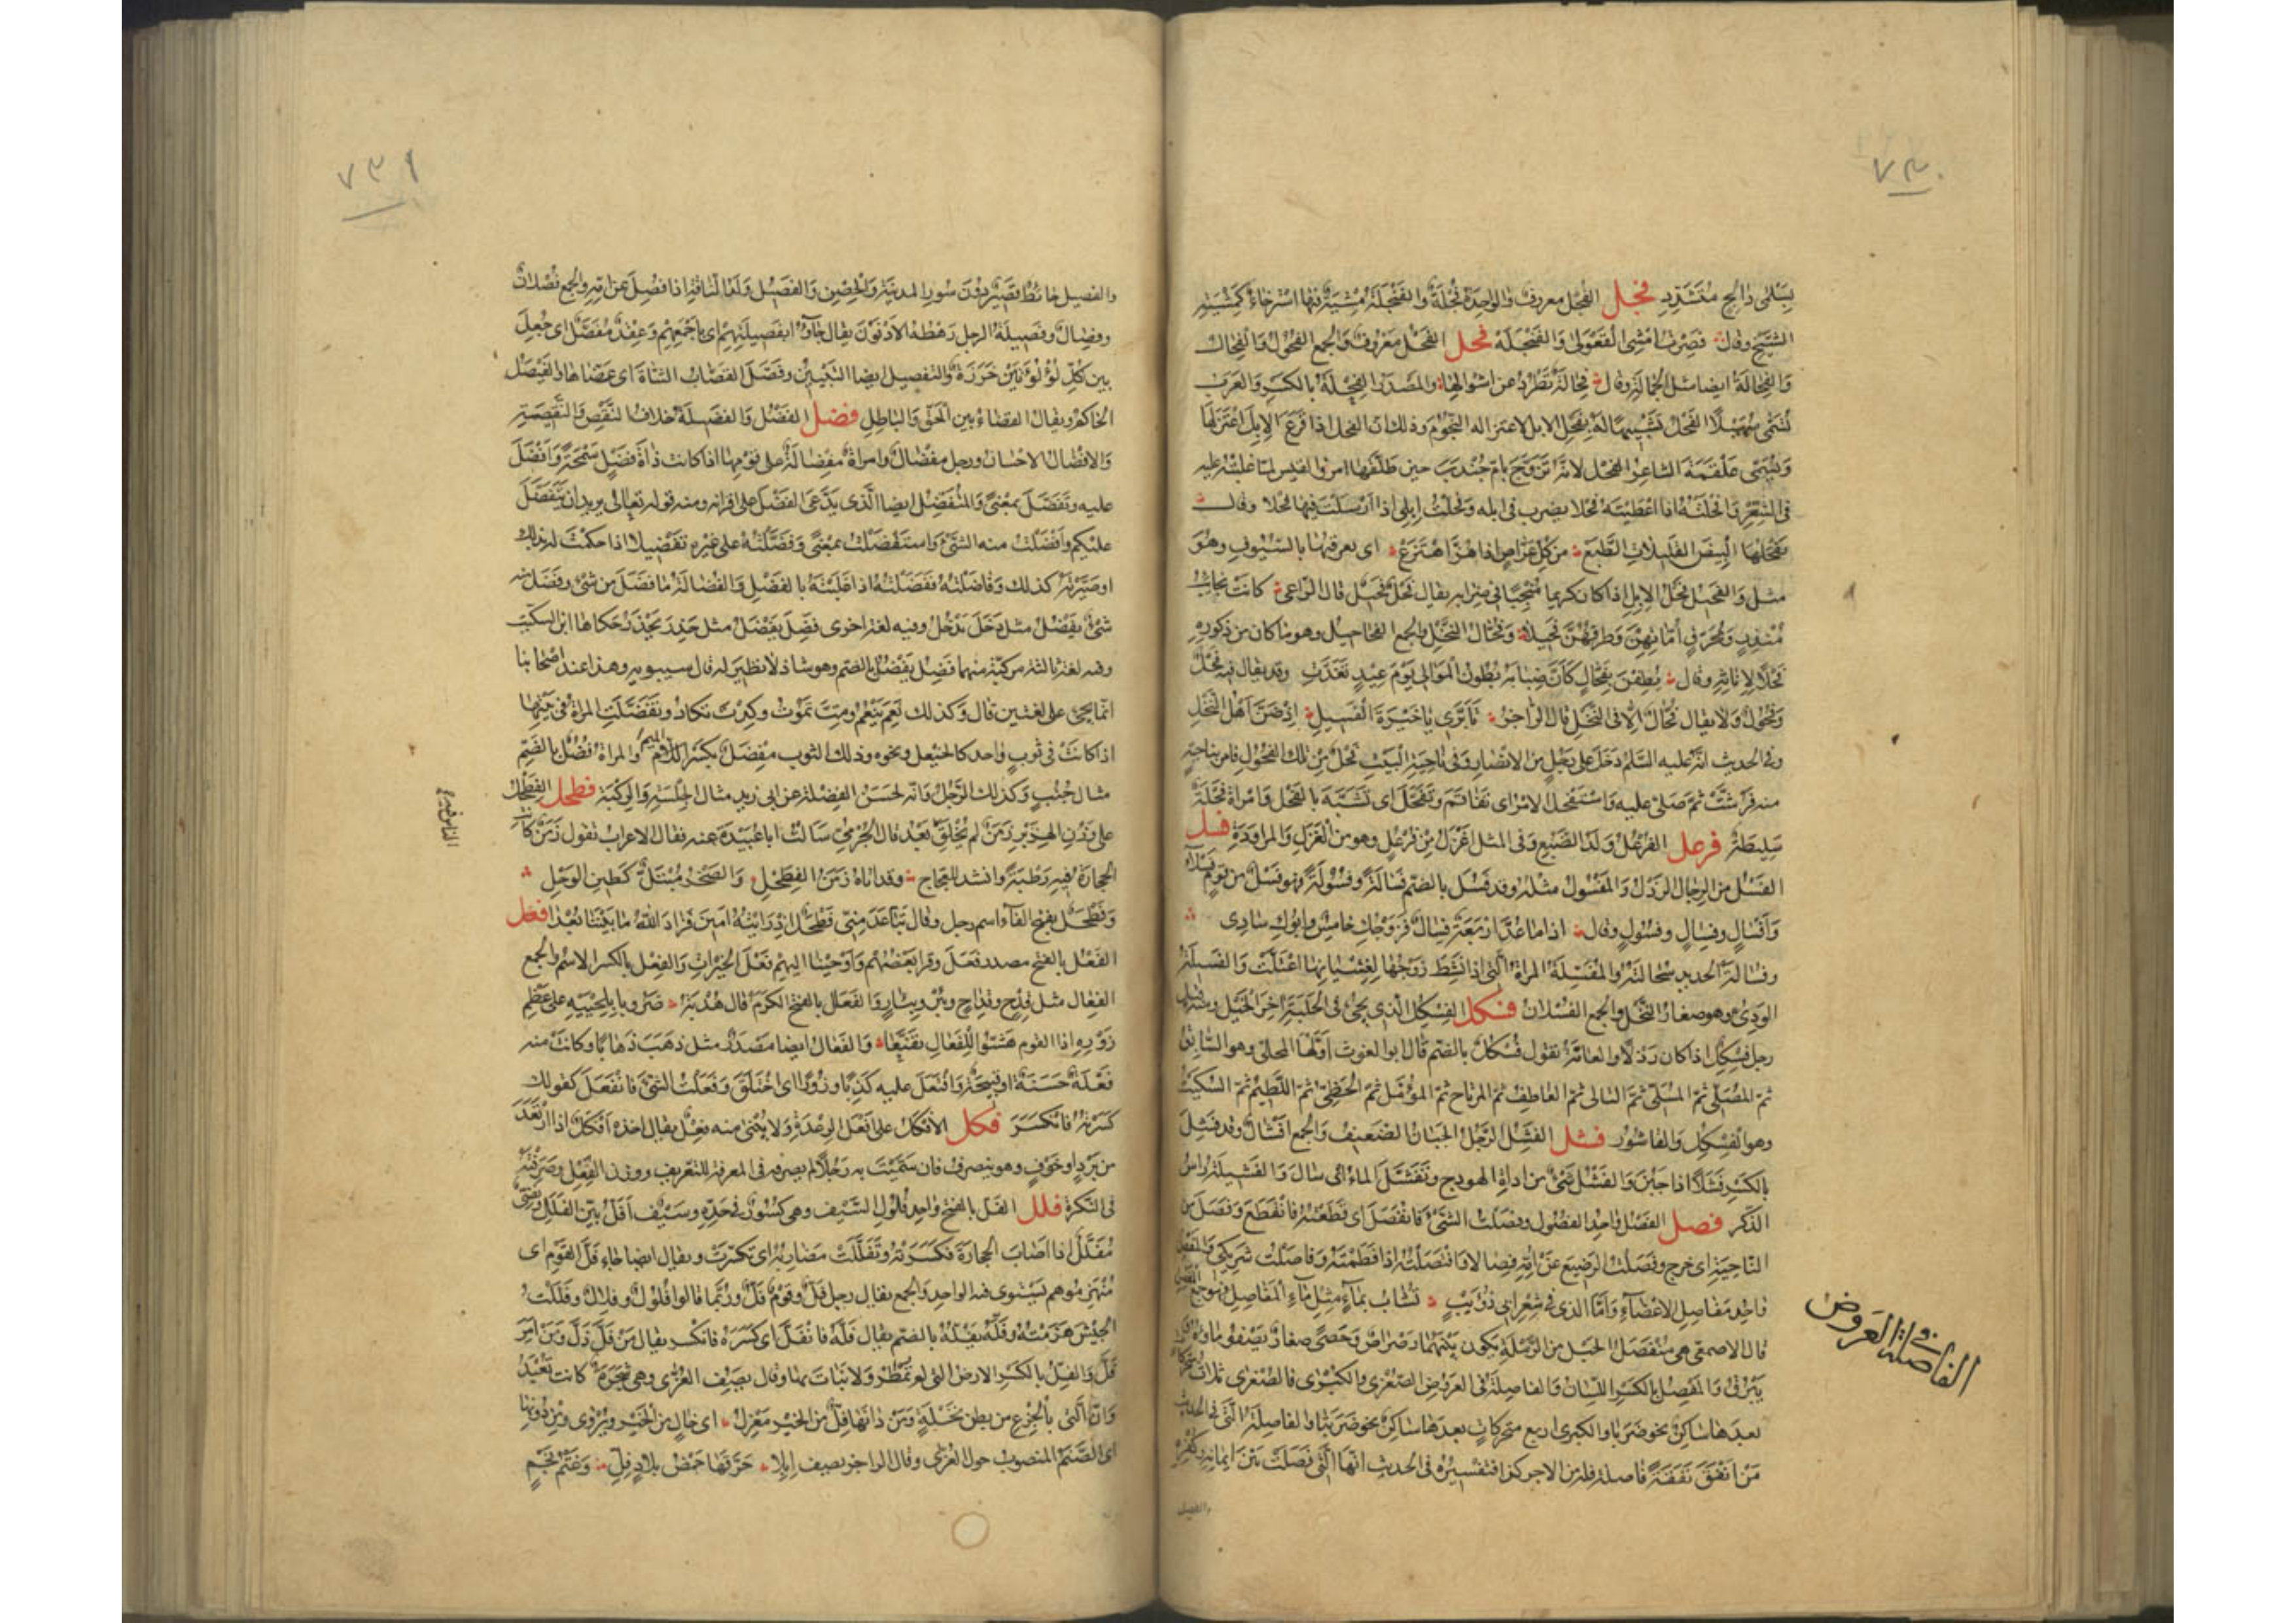 ٧٣٠
بِسَلْمَى دَالِحٍ مُتَشَدِّدِ فجل الفُجْل معروف والواحدة فُجْلَةٌ والفَنْجَلَةُ مِشْيَةٌ فيها استرخاءٌ كمِشْيَةِ
الشيخ وقال فصرتُ أمشي القَعْوَلَى والفَنْجَلَهْ فحل الفَحْل معروف والجمع الفُحُول والفِحال
والفِحالة ايضا مثل الجِمالة وقال فِحَالَةٌ تُطْرَدُ عن أشوالها والمصدر الفِحْلَة بالكسر والعرب
تسمّى سُهَيْلًا الفحل تشبيها له بفحل الابل لاعتزاله النجوم وذلك ان الفحل اذا قرع الابل اعتزلها
ويسمى علقمة الشاعر الفحل لانه تزوج بام جندب حين طلقها امرؤ القيس لما غلبته عليه
في الشعر وافحلته اذا اعطيته فحلا يضرب في ابله وفحلت ابلي اذا ارسلت فيها فحلا وقال
نفحلها البيض القليلات الطبع من كل عراص اذا هز اهتزع اي نعرقبها بالسيوف وهو
مثل والفحيل فحل الابل اذا كان كريما منجبا في ضرابه يقال فحل فحيل قال الراعي كانت نجائب
منذر ومحرق اماتهن وطرقهن فحيلا وفحال النخل والجمع الفحاحيل وهو ما كان من ذكوره
فحلا لاناثه وقال يطفن بفحال كأن ضبابه بطون الموالي يوم عيد تغدت وقد يقال فيه فحل
وفحول ولا يقال فحال الا في النخل قال الراجز تأبري يا خيرة الفسيل اذ ضن اهل النخل
وفي الحديث انه عليه السلم دخل على رجل من الانصار وفي ناحية البيت فحل من تلك الفحول فامر بناحية
منه فرشت ثم صلى عليه واستفحل الامر اي تفاقم وتفحل اي تشبه بالفحل وامراة فحلة
سليطة فرعل الفرعل ولد الضبع وفي المثل اغزل من فرعل وهو من الغزل والمراودة فسل
الفسل من الرجال الرذل والمفسول مثله وقد فسل بالضم فسالة وفسولة فهو فسل من قوم فسلاء
وافسال وفسال وفسول وقال اذا ما عد اربعة فسال فزوجك خامس وابوك سادي
وفسالة الحديد سحالته والمفسلة المراة التي اذا نشط زوجها لغشيانها اعتلت والفسيلة
الودي وهو صغار النخل والجمع الفسلان فسكل الفسكل الذي يجئ في الحلبة اخر الخيل ومنه قيل
رجل فسكل اذا كان رذلا والعامة تقول فسكل بالضم قال ابو الغوث اولها المجلي وهو السابق
ثم المصلي ثم المسلي ثم التالي ثم العاطف ثم المرتاح ثم المؤمل ثم الحظي ثم اللطيم ثم السكيت
وهو الفسكل والقاشور فشل الفشل الرجل الجبان الضعيف والجمع افشال وقد فشل
بالكسر فشلا اذا جبن والفشل شئ من اداة الهودج وتفشل الماء اي سال والفشيلة راس
الذكر فصل الفصل واحد الفصول وفصلت الشئ فانفصل اي قطعته فانقطع وفصل من
الناحية اي خرج وفصلت الرضيع عن امه فصالا وافتصلته اذا فطمته وفاصلت شريكي والمفصل
واحد مفاصل الاعضاء واما الذي في شعر ابي ذؤيب تشاب بماء مثل ماء المفاصل فهو جمع المفصل
قال الاصمعي هي منفصل الجبل من الرملة يكون بينهما رضراض وحصى صغار يصفو ماؤه
يبرق والمفصل بالكسر اللسان والفاصلة في العروض الصغرى والكبرى فالصغرى ثلاث متحركات
بعدها ساكن نحو ضربا والكبرى اربع متحركات بعدها ساكن نحو ضربتا والفاصلة التي في الحديث
من انفق نفقة فاصلة فله من الاجر كذا فتفسيره في الحديث انها التي فصلت بين ايمانه وكفره
والفصيل
الفاصلة في العروض
٧٣١
والفصيل حائط قصير دون سور المدينة والحصن والفصيل ولد الناقة اذا فصل عن امه والجمع فصلان
وفصال وفصيلة الرجل رهطه الادنون يقال جاؤا بفصيلتهم اي باجمعهم وعقد مفصل اي جعل
بين كل لؤلؤتين خرزة والتفصيل ايضا التبيين وفصل القصاب الشاة اي عضاها والفيصل
الحاكم ويقال القضاء بين الحق والباطل فضل الفضل والفضيلة خلاف النقص والنقيصة
والافضال الاحسان ورجل مفضال وامراة مفضالة على قومها اذا كانت ذاة فضل سمحة وافضل
عليه وتفضل بمعنى والمتفضل ايضا الذي يدعي الفضل على اقرانه ومنه قوله تعالى يريد ان يتفضل
عليكم وافضلت منه الشئ واستفضلت بمعنى وفضلته على غيره تفضيلا اذا حكمت له بذلك
او صيرته كذلك وفاضلته ففضلته اذا غلبته بالفضل والفضالة ما فضل من شئ وفضل منه
شئ يفضل مثل دخل يدخل وفيه لغة اخرى فضل يفضل مثل حذر يحذر حكاها ابن السكيت
وفيه لغة ثالثة مركبة منهما فضل يفضل بالضم وهو شاذ لا نظير له قال سيبويه وهذا عند اصحابنا
انما يجئ على لغتين قال وكذلك نعم ينعم ومت تموت وكدت تكاد وتفضلت المراة في بيتها
اذا كانت في ثوب واحد كالخيعل ونحوه وذلك الثوب مفضل بكسر الميم والمراة فضل بالضم
مثال جنب وكذلك الرجل وانه لحسن الفضلة عن ابي زيد مثال الجلسة والركبة فطحل الفطحل
على وزن الهزبر زمن لم يخلق بعد قال الجرمي سالت ابا عبيدة عنه فقال الاعراب تقول زمن كانت
الحجارة فيه رطبة وانشد للعجاج وقد اتاه زمن الفطحل والصخر مبتل كطين الوحل
وفطحل بفتح الفاء اسم رجل وقال تباعد مني فطحل اذ رايته امين فزاد الله ما بيننا بعدا فعل
الفعل بالفتح مصدر فعل وقرا بعضهم واوحينا اليهم فعل الخيرات والفعل بالكسر الاسم والجمع
الفعال مثل قدح وقداح وبئر وبئار والفعال بالفتح الكرم قال هدبة ضروبا بلحييه على عظم
زوره اذا القوم هشوا للفعال تقنعا والفعال ايضا مصدر مثل ذهب ذهابا وكانت منه
فعلة حسنة او قبيحة وافتعل عليه كذبا وزورا اي اختلق وفعلت الشئ فانفعل كقولك
كسرته فانكسر فكل الافكل على افعل الرعدة ولا يبنى منه فعل يقال اخذه افكل اذا ارتعد
من برد او خوف وهو ينصرف فان سميت به رجلا لم يصرفه في المعرفة للتعريف ووزن الفعل وصرفته
في النكرة فلل الفل بالفتح واحد فلول السيف وهي كسور في حده وسيف افل بين الفلل
مفلل اذا اصاب الحجارة فكسرته وتفللت مضاربه اي تكسرت ويقال ايضا جاء فل القوم اي
منهزموهم يستوي فيه الواحد والجمع يقال رجل فل وقوم فل وربما قالوا فلول وفلال وفللت
الجيش هزمته وفله يفله بالضم يقال فله فانفل اي كسره فانكسر يقال من فل ذل ومن امر
فل والفل بالكسر الارض التي لم تمطر ولا نبات بها وقال يصف العزى وهي شجرة كانت تعبد
وان التي بالجزع من بطن نخلة ومن دانها فل من الخير معزل اي خال من الخير ويروى ومن دونها
اي الصنم المنصوب حول العزى وقال الراجز يصف ابلا حرقها حمض بلاد فل وغتم نجم